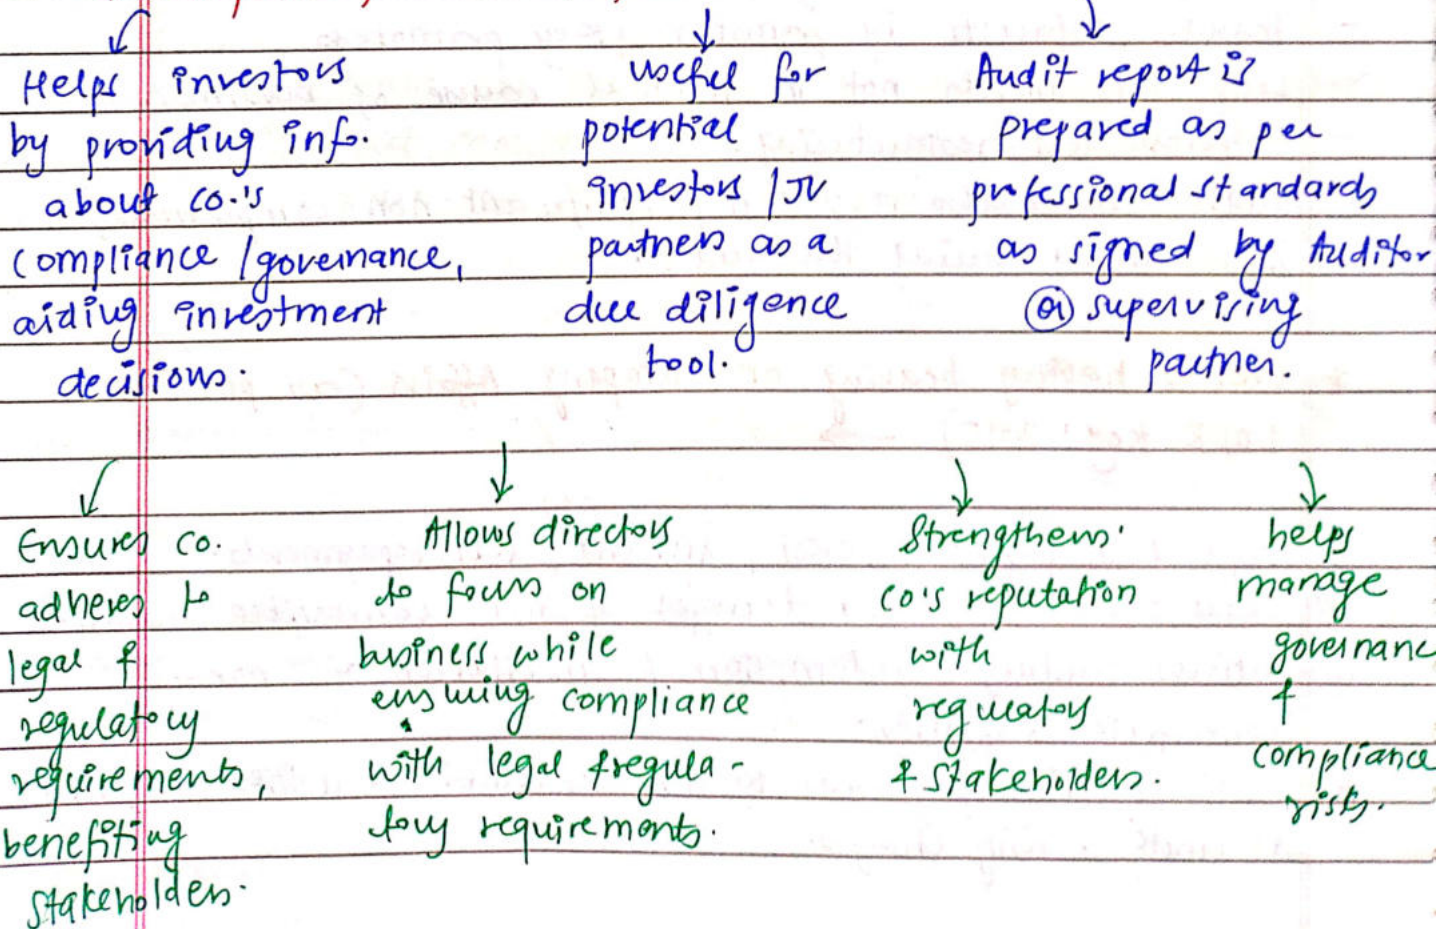 Helps investors
by providing info.
about co.'s
compliance / governance,
aiding investment
decisions.
useful for
potential
investors / JV
partners as a
due diligence
tool.
Audit report is
prepared as per
professional standards
as signed by Auditor
or supervising
partner.
Ensures co.
adheres to
legal &
regulatory
requirements,
benefiting
stakeholders.
Allows directors
to focus on
business while
ensuring compliance
with legal & regula-
tory requirements.
Strengthens
co's reputation
with
regulators
& stakeholders.
helps
manage
governanc
&
compliance
risks.